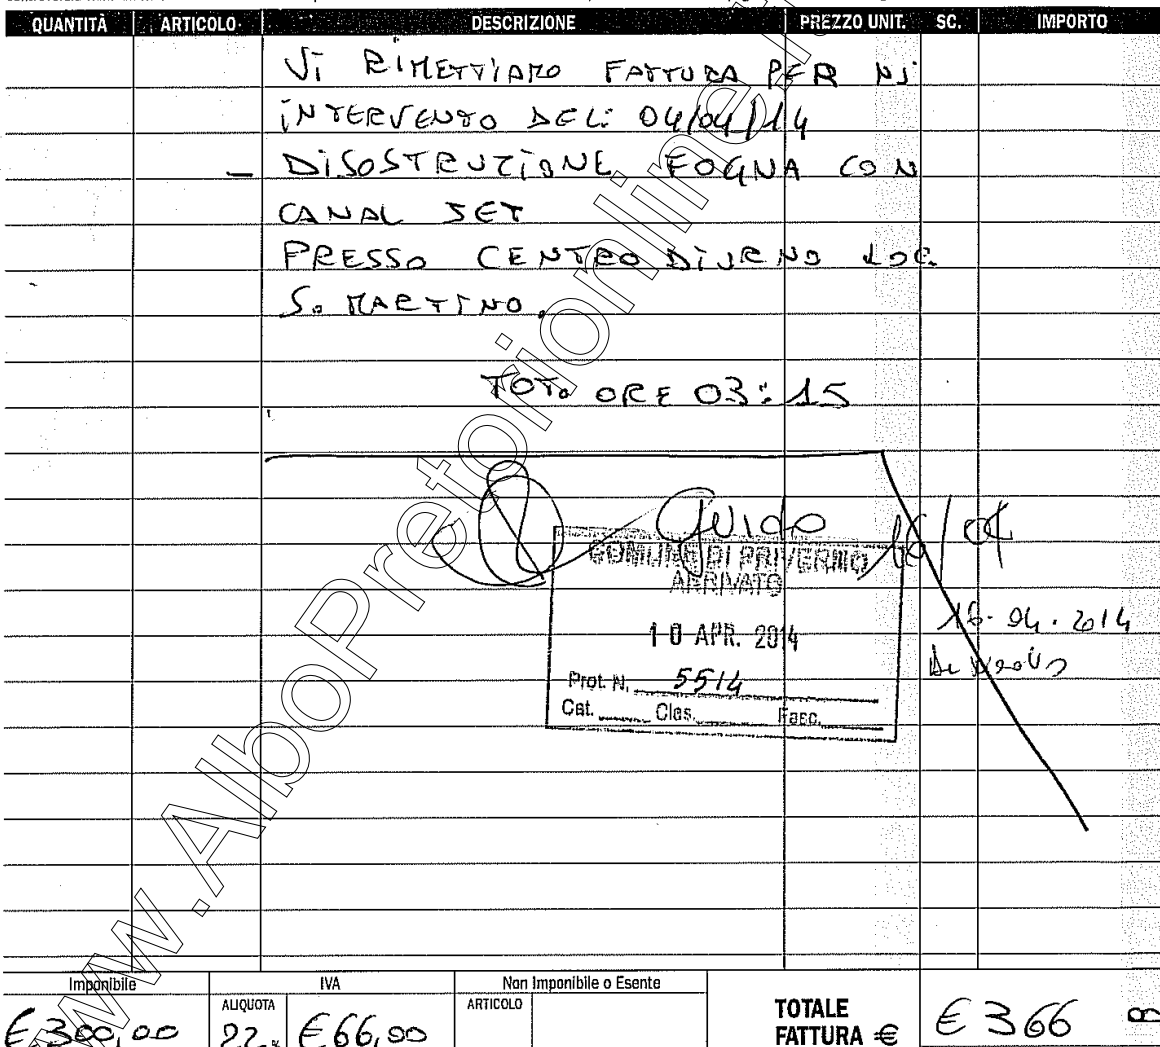 QUANTITÀ ARTICOLO DESCRIZIONE PREZZO UNIT. SC. IMPORTO
Vi RIMETTIAMO FATTURA PER NS
INTERVENTO DEL: 04/04/14
– DISOSTRUZIONE FOGNA CON
CANAL JET
PRESSO CENTRO DIURNO LOC.
S. MARTINO.
TOT. ORE 03:15
Guido
COMUNE DI PRIVERNO
ARRIVATO
10 APR. 2014
Prot. N. 5514
Cat. Clas. Fasc.
16.04.2014
www.AlboPretorionline.
Imponibile IVA Non Imponibile o Esente
ALIQUOTA ARTICOLO
€ 300,00 22 % € 66,00
TOTALE
FATTURA € € 366